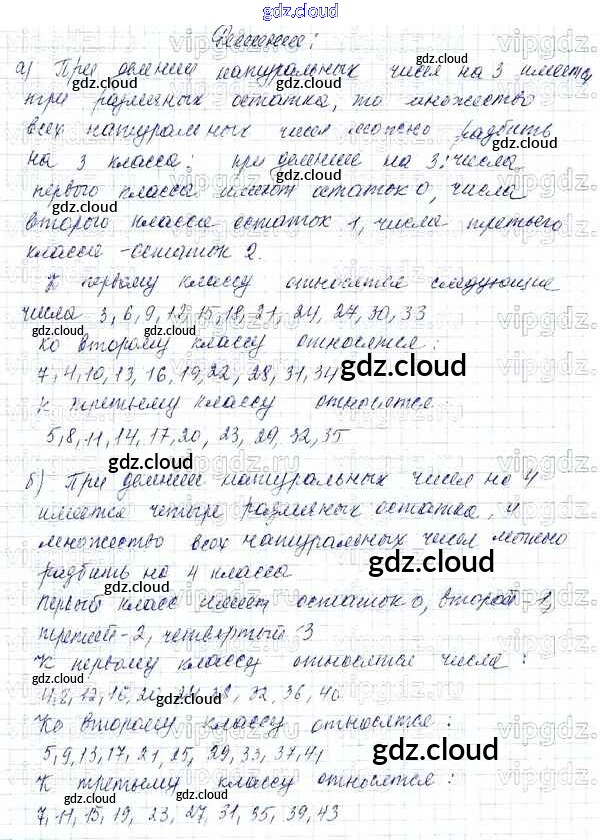 gdz.cloud
Решение:
а) При делении натуральных чисел на 3 имеется
три различных остатка, то множество
всех натуральных чисел можно разбить
на 3 класса: при делении на 3: числа
первого класса имеют остаток 0, числа
второго класса остаток 1, числа третьего
класса - остаток 2.
К первому классу относятся следующие
числа 3, 6, 9, 12, 15, 18, 21, 24, 27, 30, 33
Ко второму классу относятся:
7, 4, 10, 13, 16, 19, 22, 28, 31, 34
К третьему классу относятся:
5, 8, 11, 14, 17, 20, 23, 29, 32, 35
б) При делении натуральных чисел на 4
имеется четыре различных остатка, и
множество всех натуральных чисел можно
разбить на 4 класса
Первый класс имеет остаток 0, второй 1,
третий - 2, четвертый 3
К первому классу относятся числа:
4, 8, 12, 16, 20, 24, 28, 32, 36, 40
Ко второму классу относятся:
5, 9, 13, 17, 21, 25, 29, 33, 37, 41
К третьему классу относятся:
7, 11, 15, 19, 23, 27, 31, 35, 39, 43